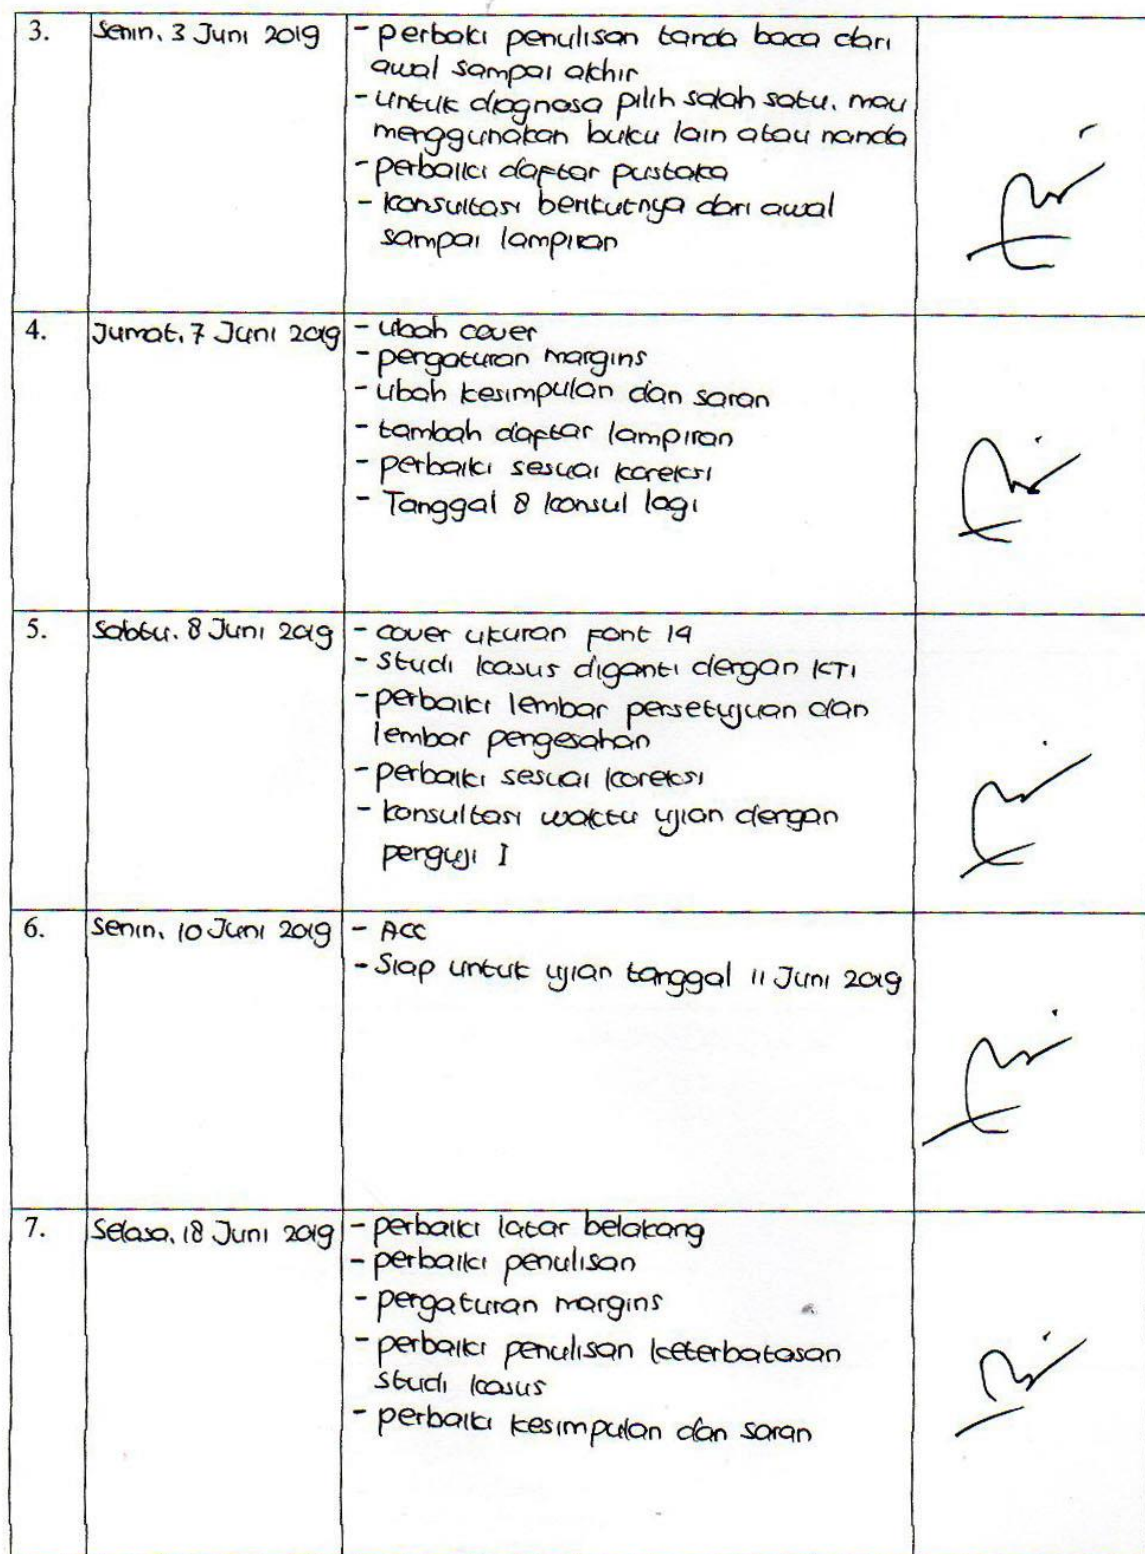 3. Senin, 3 Juni 2019 - perbaki penulisan tanda baca dari
awal sampai akhir
- untuk diagnosa pilih salah satu. mau
menggunakan buku lain atau nanda
- perbaiki daftar pustaka
- konsultasi berikutnya dari awal
sampai lampiran
4. Jumat, 7 Juni 2019 - ubah cover
- pengaturan margins
- ubah kesimpulan dan saran
- tambah daftar lampiran
- perbaiki sesuai koreksi
- Tanggal 8 konsul lagi
5. Sabtu, 8 Juni 2019 - cover ukuran font 14
- studi kasus diganti dengan KTI
- perbaiki lembar persetujuan dan
lembar pengesahan
- perbaiki sesuai koreksi
- konsultasi waktu ujian dengan
penguji I
6. Senin, 10 Juni 2019 - ACC
- Siap untuk ujian tanggal 11 Juni 2019
7. Selasa, 18 Juni 2019 - perbaiki latar belakang
- perbaiki penulisan
- pengaturan margins
- perbaiki penulisan keterbatasan
studi kasus
- perbaiki kesimpulan dan saran